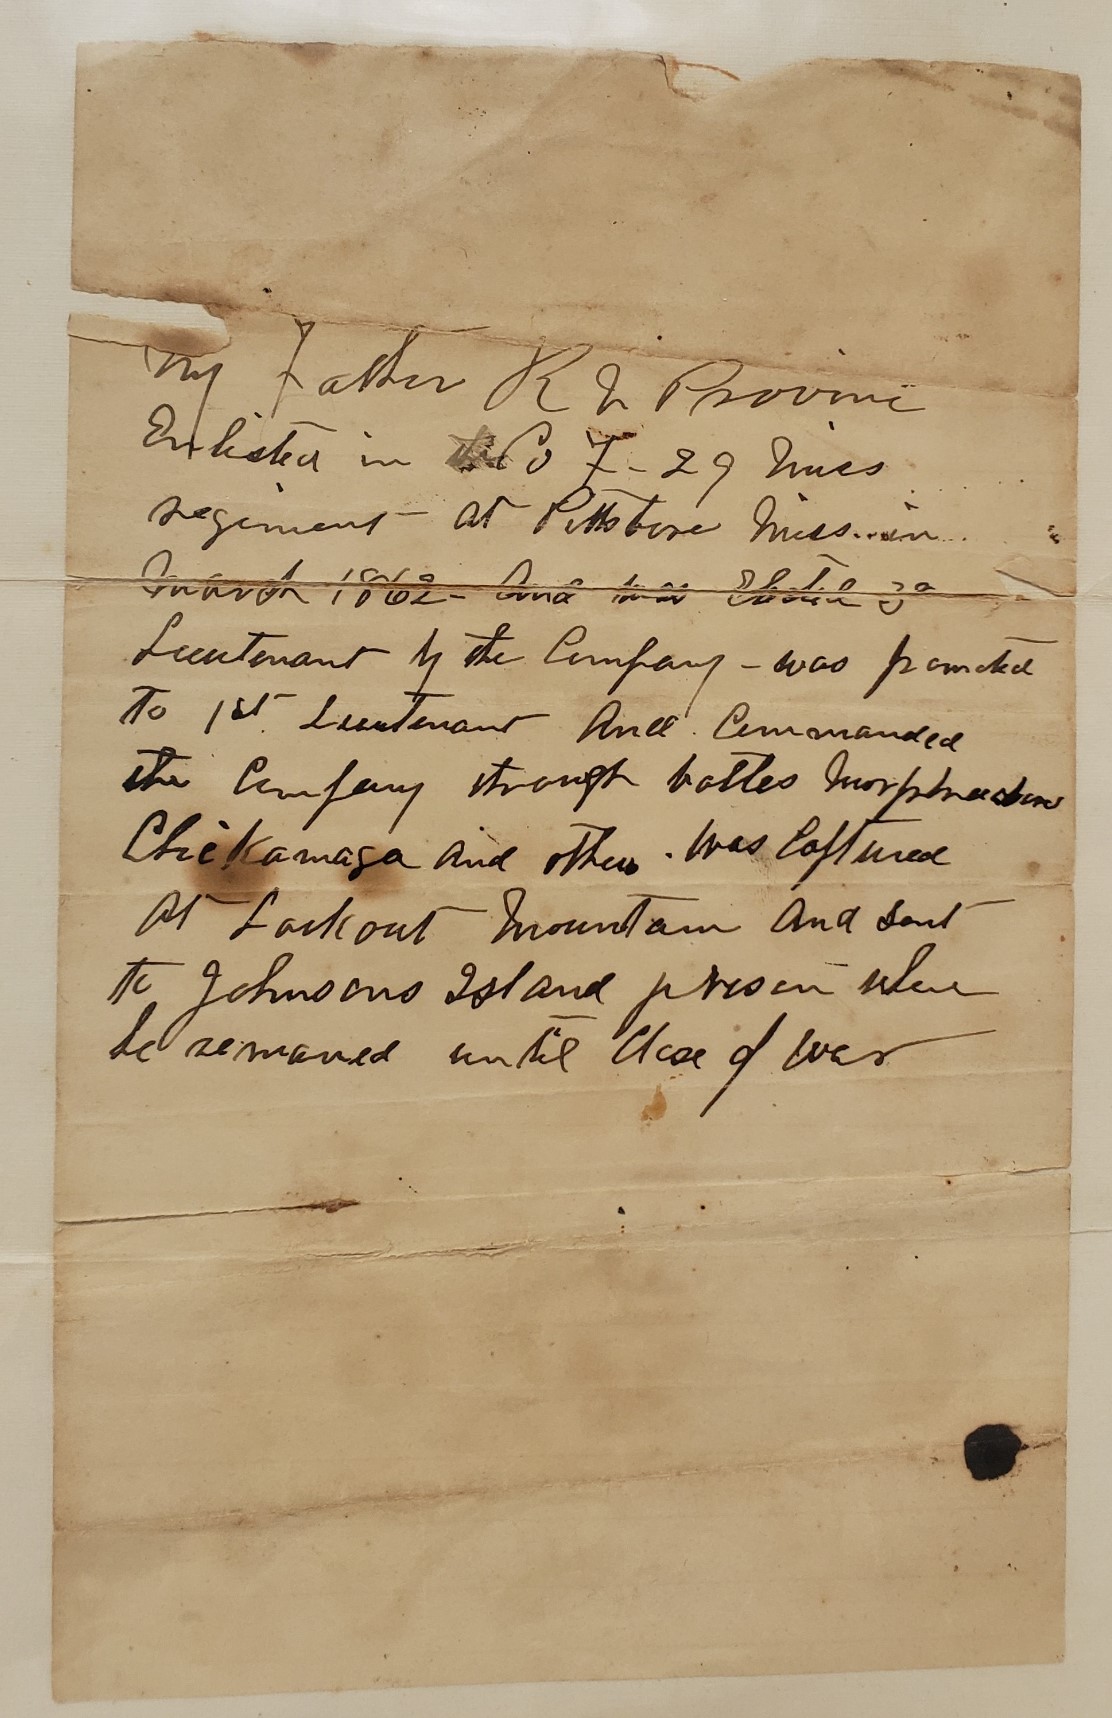 My Father R N Provine
Enlisted in Co F - 29 Miss
regiment at Pittsboro Miss. in
March 1862 - And was Elected 3d
Lieutenant by the Company - was promoted
To 1st Lieutenant And Commanded
the Company through battles Morphreesboro
Chickamaga And others. Was Captured
At Lookout Mountain And sent
to Johnsons Island prison where
he remained until Close of War